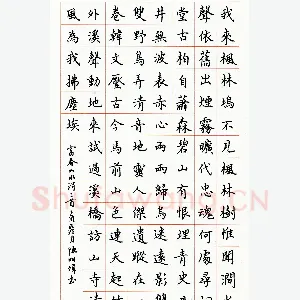 我來楓林塢不見楓林樹惟聞澗水
聲依舊出煙霧曠代忠魂何處尋
堂古柏自蕭森碧山有恨埋青
井無波表赤心兩兩歸烏迷遠影
叟野鳥弄清音地靈人傑遺蹤在
卷韓文壓古今馬前山色連天起
外溪聲動地來試過溪橋訪山寺
風為我拂塵埃
富春山水河
Shufawang.CN